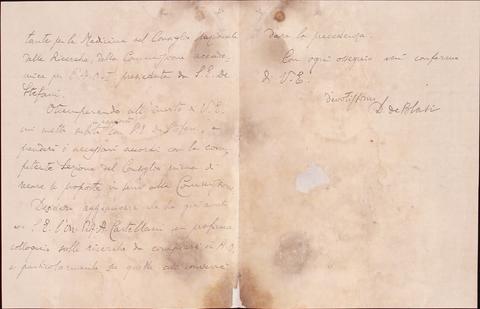 tante per la Medicina nel Consiglio nazionale
delle Ricerche, della Commissione accade-
mica per l'A.O.I. presieduta da S. E. De
Stefani.
Ottemperando all'invito di V.E.
mi metto subito in rapporto con S.E. De Stefani, e
prenderò i necessari accordi con la com-
petente Sezione del Consiglio prima di
recare le proposte in seno alla Commissione.
Desidero aggiungere che ho già avuto
con S. E. l'On. Castellani un proficuo
colloquio sulle ricerche da compiersi in A.O.
e particolarmente su quelle cui converrà
dare la precedenza.
Con ogni ossequio mi confermo
di V.E.
Devotissimo
D. de Blasi